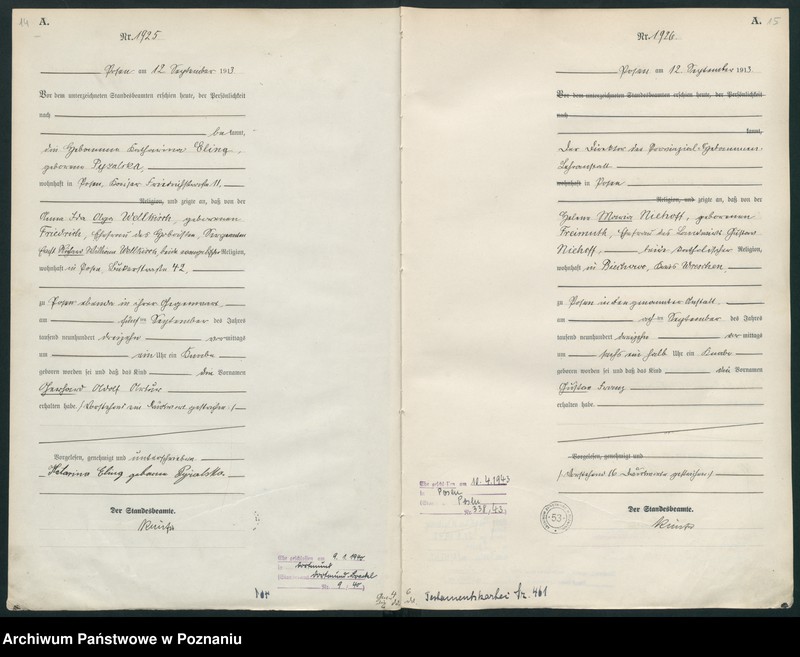 14
A.
Nr. 1925
Posen am 12 September 1913
Vor dem unterzeichneten Standesbeamten erschien heute, der Persönlichkeit
nach
be kannt,
die Hebamme Katharina Eling,
geborene Pyzalska,
wohnhaft in Posen, Kaiser Friedrichstrasse 11,
Religion, und zeigte an, daß von der
Anna Ida Olga Wollkirch, geborenen
Friedrich, Ehefrau des Hoboisten, Sergeanten
Wilhelm Wollkirch, beide evangelischer Religion,
wohnhaft in Posen, 42,
zu Posen ebenda in ihrer Gegenwart
am fünften September des Jahres
tausend neunhundert dreizehn vor mittags
um ein Uhr ein Knabe
geboren worden sei und daß das Kind den Vornamen
Gerhard Adolf Artur
erhalten habe. / Vorstehend ein Druckwort gestrichen /
Vorgelesen, genehmigt und unterschrieben
Katarina Eling geborne Pyzalska.
Der Standesbeamte.
Ehe geschlossen am 9. 1. 1940
in Dortmund
Dortmund
Nr. 9 / 40
A.
15
Nr. 1926
Posen am 12 September 1913
Vor dem unterzeichneten Standesbeamten erschien heute, der Persönlichkeit
nach
kannt,
Der Direktor der Provinzial-Hebammen
Lehranstalt
wohnhaft in Posen
Religion, und zeigte an, daß von der
Helene Maria Niehoff, geborenen
Freimuth, Ehefrau des Landwirts Gustav
Niehoff, beide katholischer Religion,
wohnhaft in Kreis Wreschen,
zu Posen in der genannten Anstalt
am achten September des Jahres
tausend neunhundert dreizehn vor mittags
um sechs ein halb Uhr ein Knabe
geboren worden sei und daß das Kind den Vornamen
Gustav Franz
erhalten habe.
Vorgelesen, genehmigt und
/ Vorstehend 16 Druckworte gestrichen /
Der Standesbeamte.
Ehe geschlossen am 10. 4. 1943
in Posen
Posen
Nr. 338/43
53
Testamentskartei Nr. 461
Archiwum Państwowe w Poznaniu